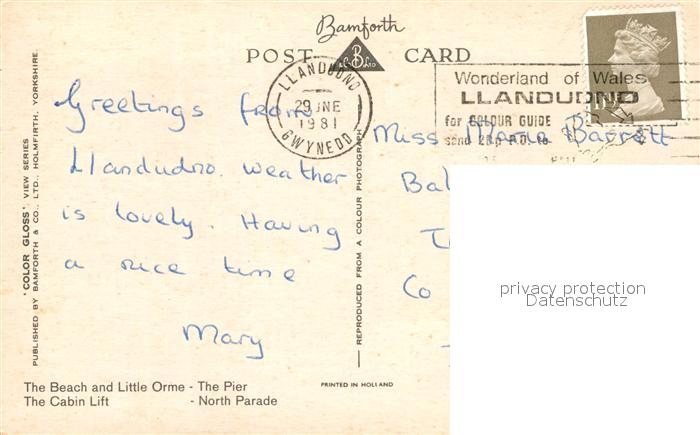 Bamforth
POST CARD
B & Co LTD
LLANDUDNO
29 JNE
1981
GWYNEDD
Wonderland of Wales
LLANDUDNO
for COLOUR GUIDE
send P.O. to
Greetings from
Llandudno. weather
is lovely. Having
a nice time
Mary
Miss Barrett
Co
privacy protection
Datenschutz
'COLOR GLOSS' VIEW SERIES
PUBLISHED BY BAMFORTH & CO., LTD., HOLMFIRTH, YORKSHIRE.
REPRODUCED FROM A COLOUR PHOTOGRAPH
The Beach and Little Orme - The Pier
The Cabin Lift - North Parade
PRINTED IN HOLLAND